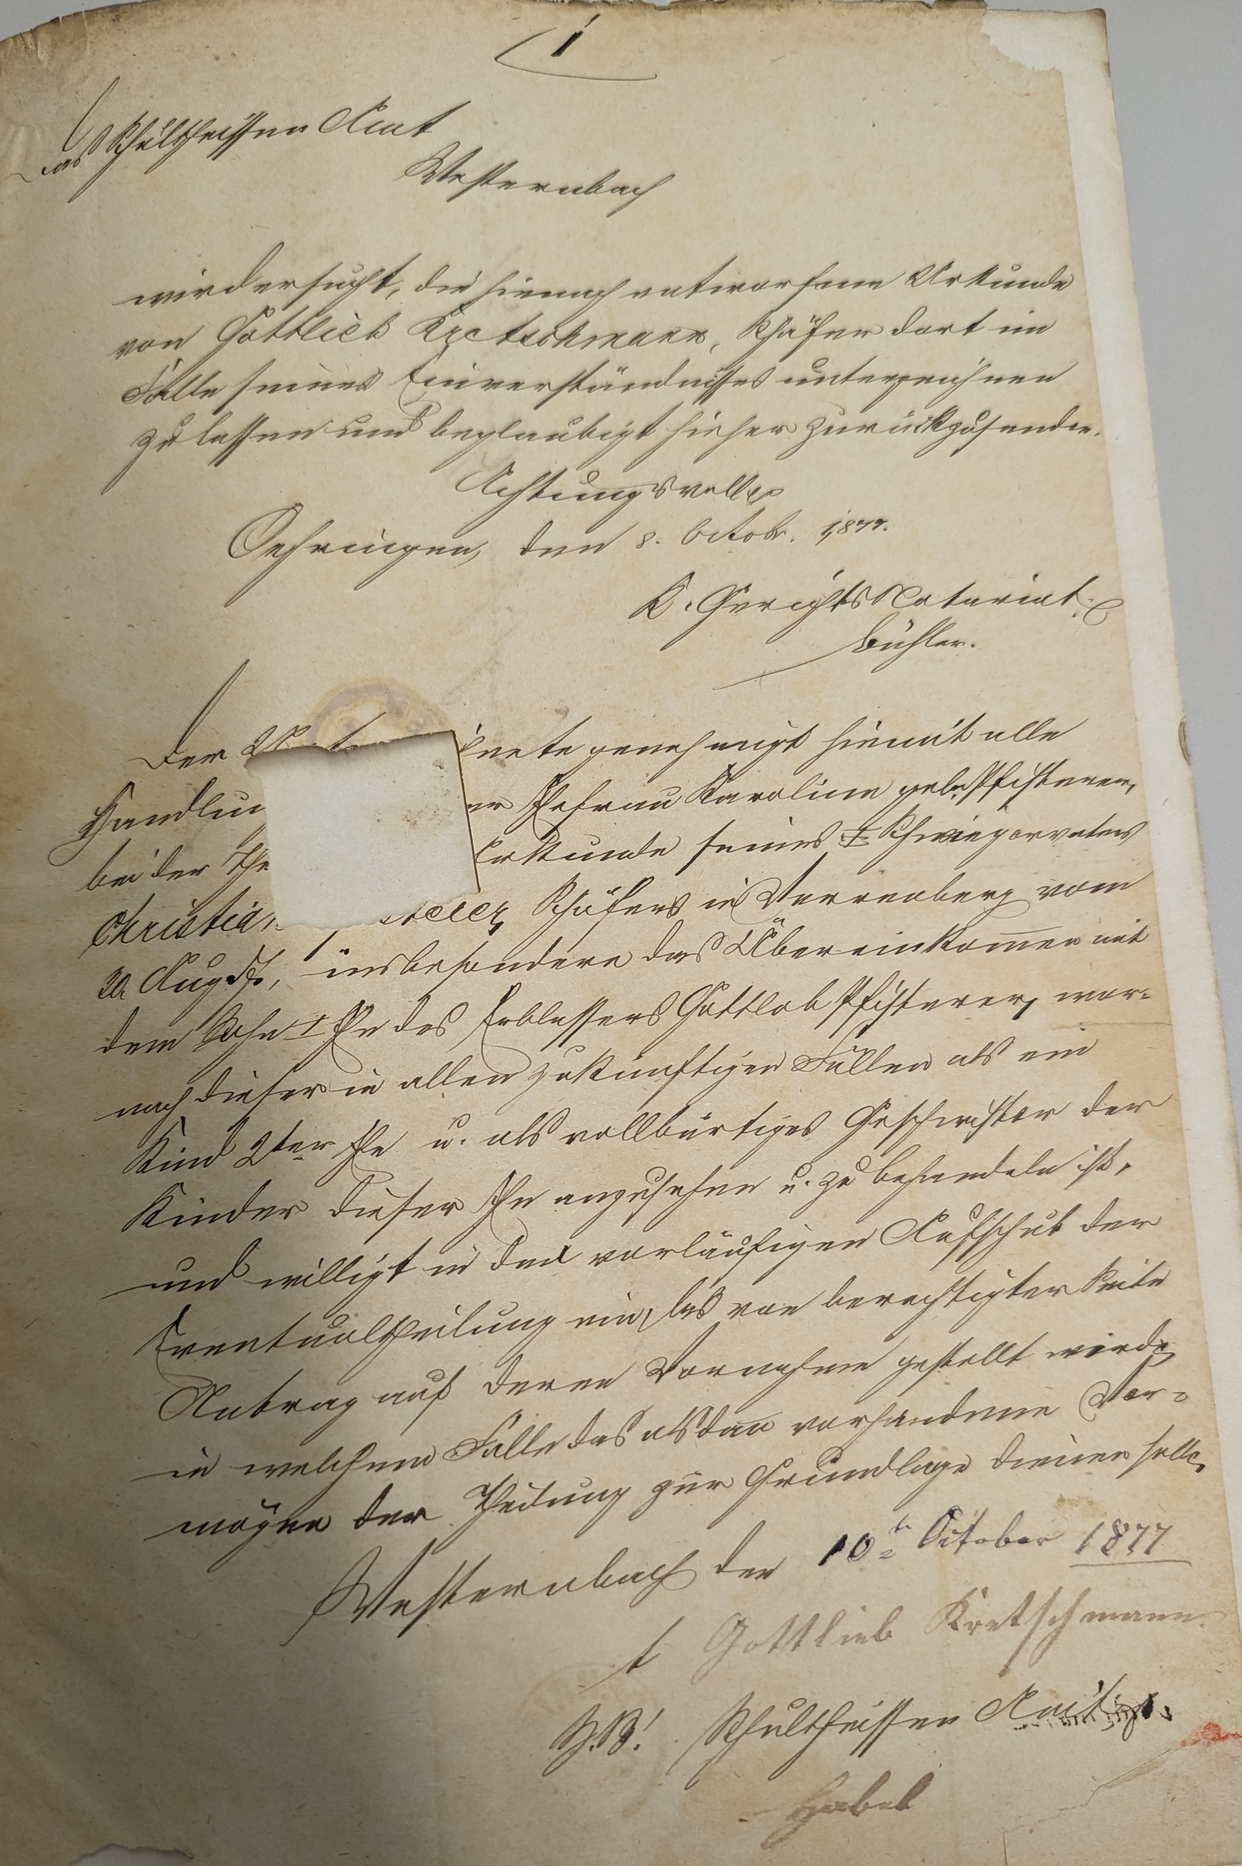 1
Das Schultheissen Amt
Westernbach
wird ersucht, die hienach entworfene Urkunde
von Gottlieb Kretschmann, Schäfer dort im
Falle seines Einverständnisses unterzeichnen
zu lassen und beglaubigt hieher zurückzusenden.
Achtungsvollst
Oehringen, den 8. Octobr. 1877.
K. Gerichts Notariat.
Bühler.
Der nete genehmigt hiemit alle
Handlun er Ehefrau Karoline geb. Pfisterer,
bei der The kunde seines † Schwiegervaters
Christia terer, Schäfers in Verrenberg vom
Aug. df., insbesondere das Übereinkommen mit
dem Sohn Ehe des Erblassers Gottlob Pfisterer, wor-
nach dieser in allen zukünftigen Fällen als ein
Kind 2ter Ehe u. als vollbürtiges Geschwister der
Kinder dieser Ehe anzusehen u. zu behandeln ist,
und willigt in den vorläufigen Aufschub der
Eventualtheilung ein, bis von berechtigter Seite
Antrag auf deren Vornahme gestellt wird,
in welchem Falle das alsdann vorhandene Ver-
mögen der Theilung zur Grundlage dienen solle.
Westernbach den 10t October 1877
t Gottlieb Kretschmann.
Z.B! Schultheissen Amt
Habel